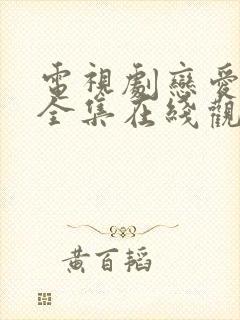 電視劇戀愛
全集在綫觀
黃百韜